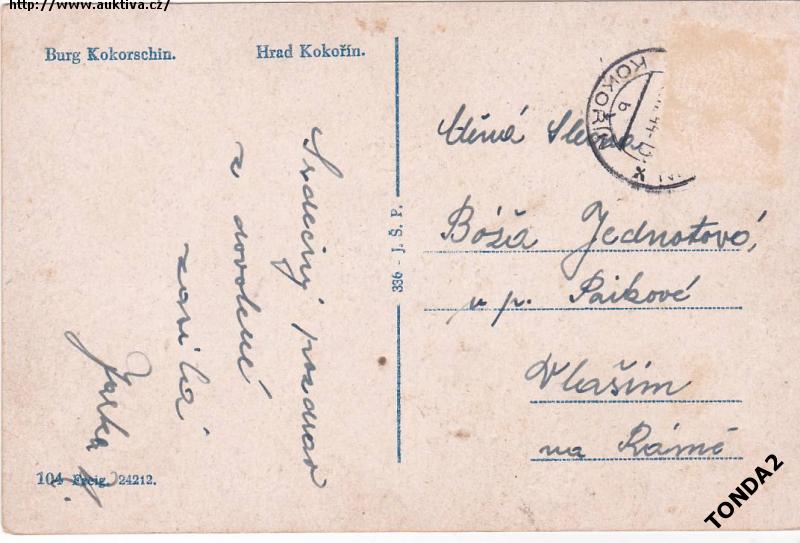 http://www.auktiva.cz/
Burg Kokorschin. Hrad Kokořín.
Srdečný pozdrav
z dovolené
zasílá
Jarka
104 Freig. 24212.
336 - J. Š. P.
KOKOŘÍN
b
44
Ctěná Slečna
Bóža Jednotová,
u p. Paikové
Vlašim
na Rámě
TONDA2